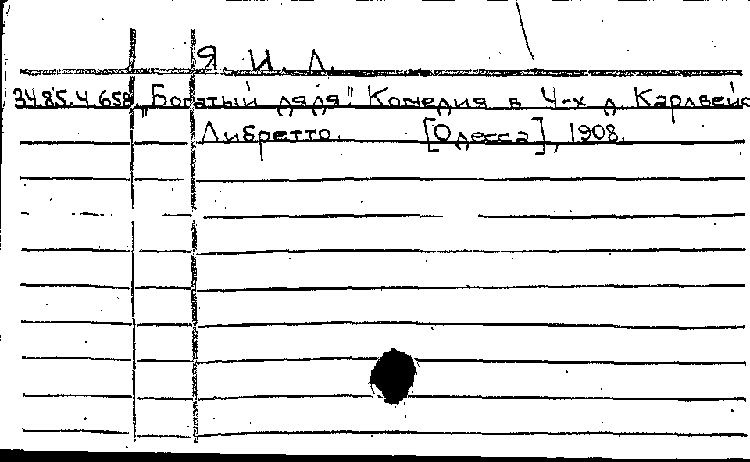 Я. И. Л.
34.85.4.658 „Богатый дядя" Комедия в 4-х д. Карлвейс
Либретто. [Одесса], 1908.